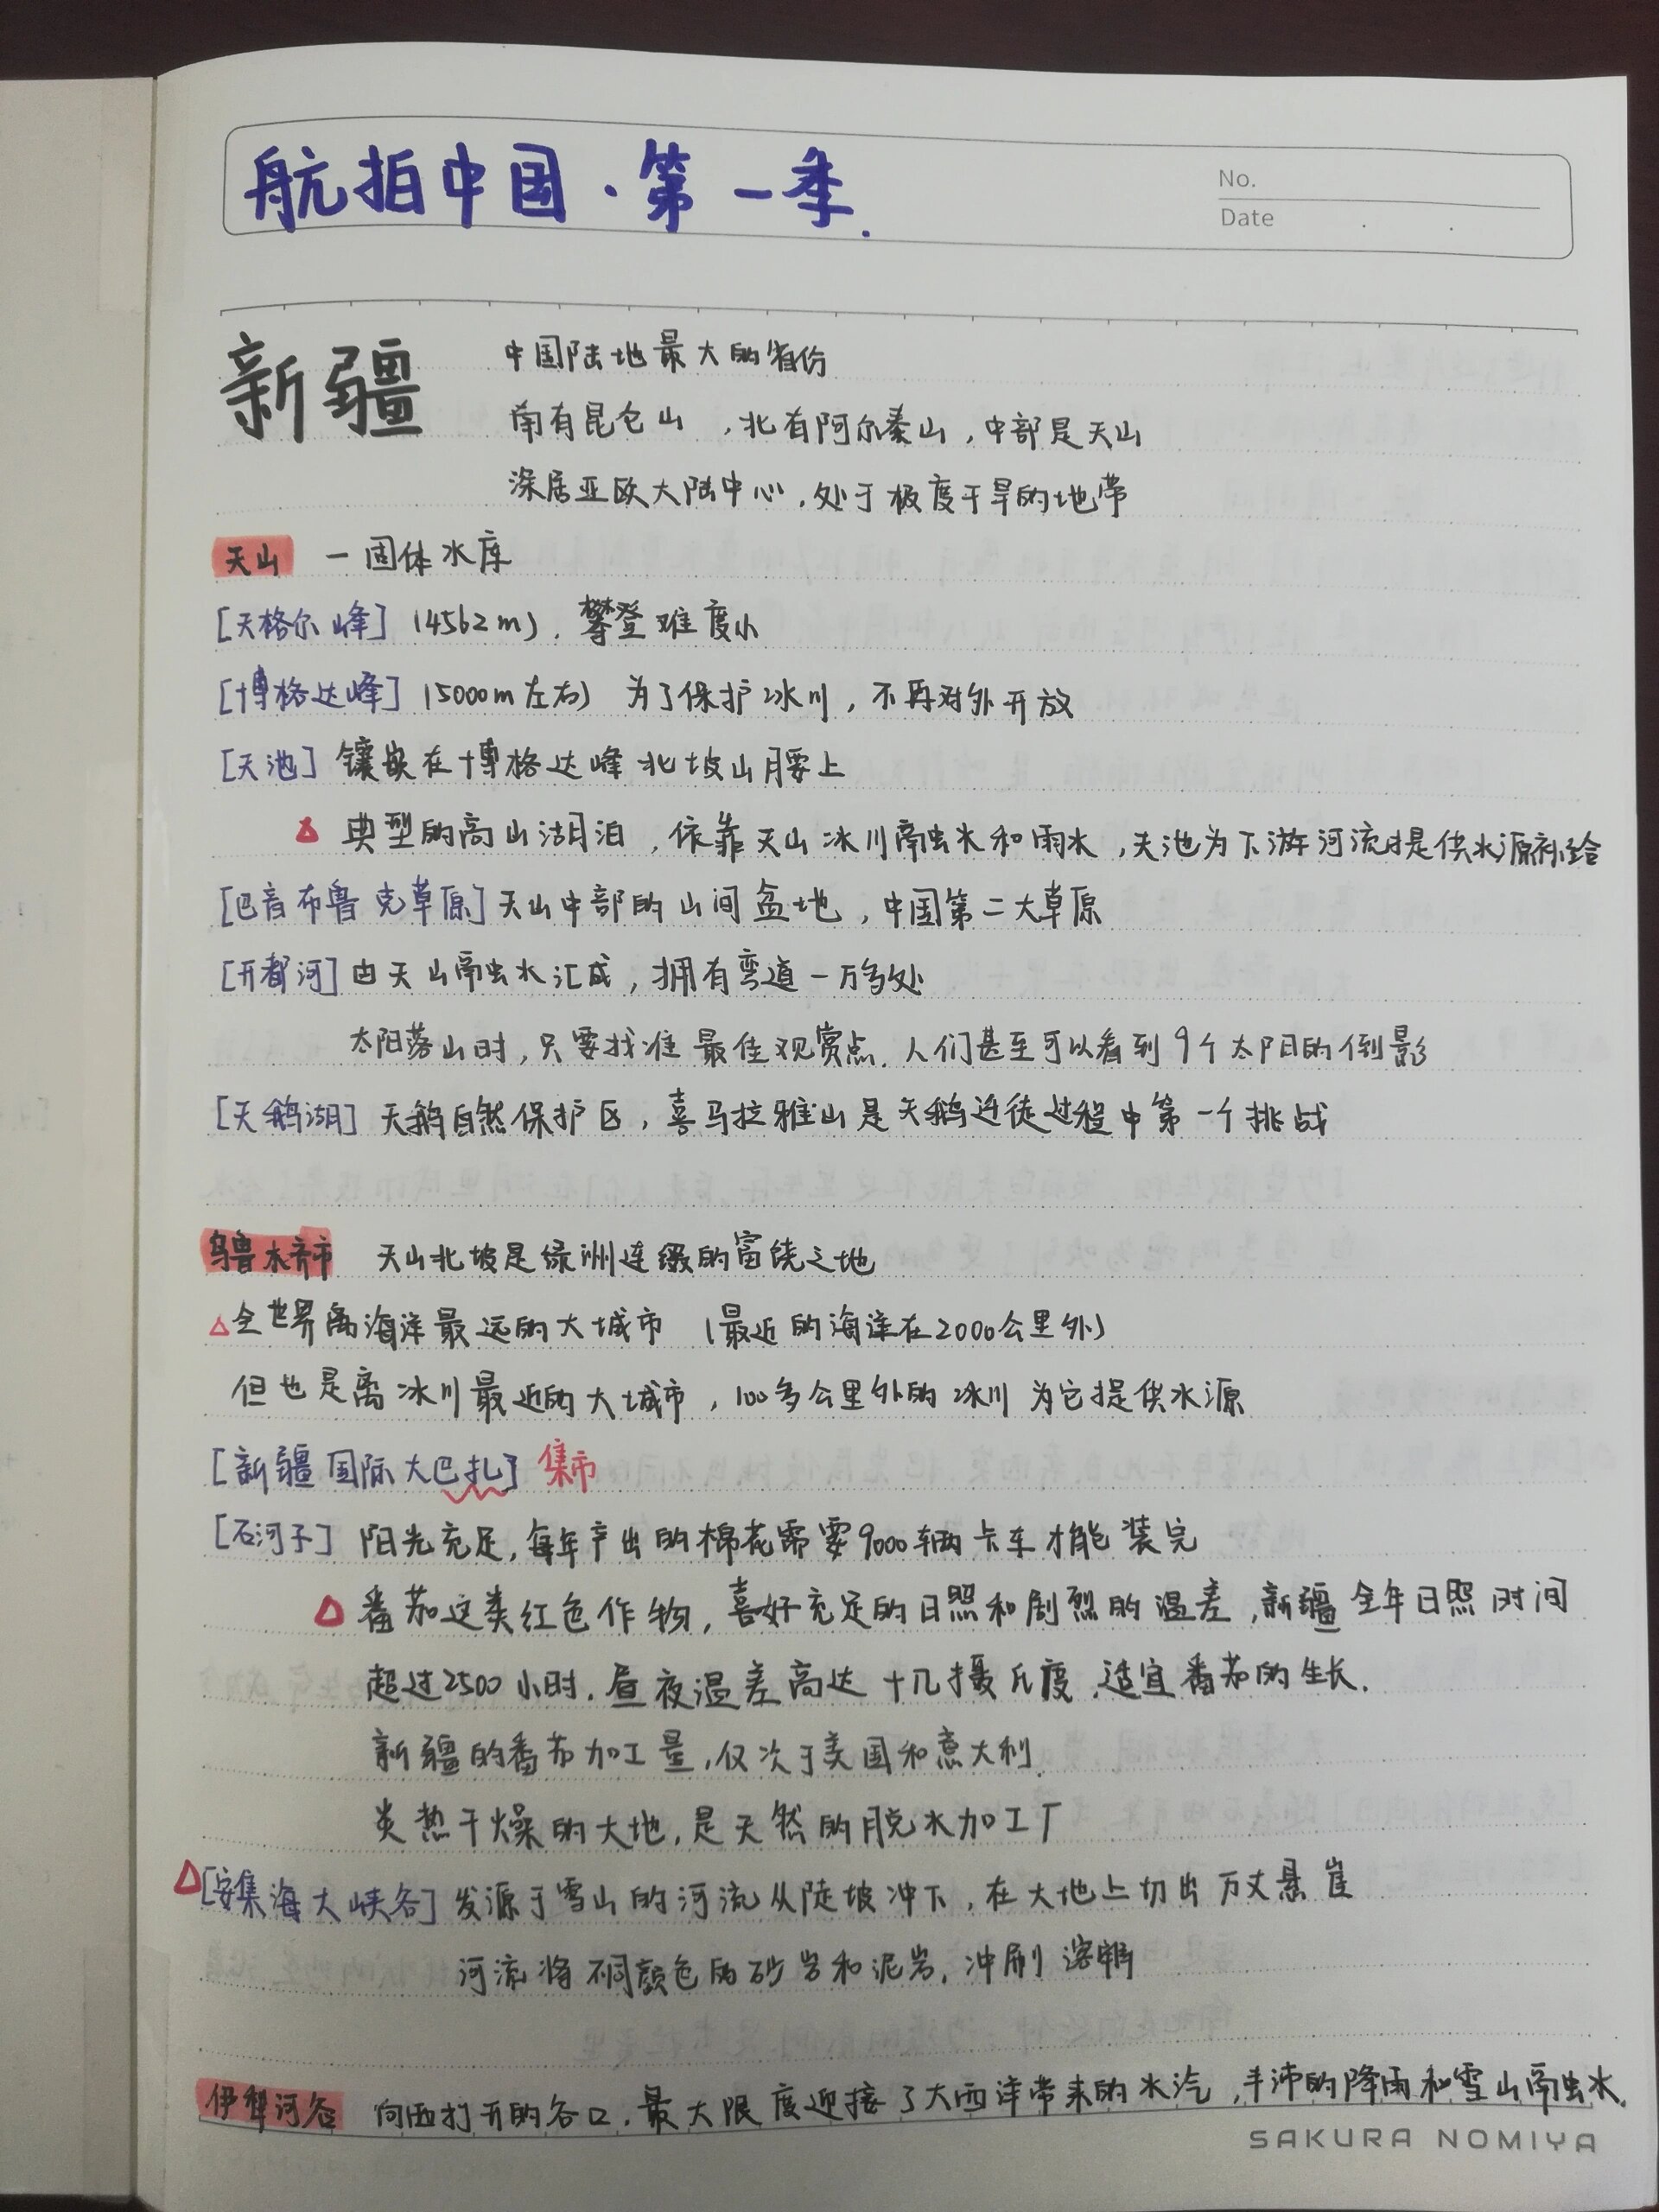 航拍中国·第一季.
No.
Date
新疆
中国陆地最大的省份
南有昆仑山,北有阿尔泰山,中部是天山
深居亚欧大陆中心,处于极度干旱的地带
天山 — 固体水库
[天格尔峰] (4562m), 攀登难度小
[博格达峰] (5000m左右) 为了保护冰川,不再对外开放
[天池] 镶嵌在博格达峰北坡山腰上
△ 典型的高山湖泊,依靠天山冰川融水和雨水,天池为下游河流提供水源补给
[巴音布鲁克草原] 天山中部的山间盆地,中国第二大草原
[开都河] 由天山融水汇成,拥有弯道一万多处
太阳落山时,只要找准最佳观赏点,人们甚至可以看到9个太阳的倒影
[天鹅湖] 天鹅自然保护区,喜马拉雅山是天鹅迁徒过程中第一个挑战
乌鲁木齐市 天山北坡是绿洲连缀的富饶之地
△全世界离海洋最远的大城市 (最近的海洋在2000公里外)
但也是离冰川最近的大城市,100多公里外的冰川为它提供水源
[新疆国际大巴扎] 集市
[石河子] 阳光充足,每年产出的棉花需要9000辆卡车才能装完
△ 番茄这类红色作物,喜好充足的日照和剧烈的温差,新疆全年日照时间
超过2500小时,昼夜温差高达十几摄氏度,适宜番茄的生长.
新疆的番茄加工量,仅次于美国和意大利.
炎热干燥的大地,是天然的脱水加工厂
△[安集海大峡谷] 发源于雪山的河流从陡坡冲下,在大地上切出万丈悬崖
河流将不同颜色的砂岩和泥岩,冲刷溶解
伊犁河谷 向西打开的谷口,最大限度迎接了大西洋带来的水汽,丰沛的降雨和雪山融水.
SAKURA NOMIYA